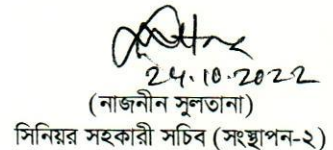 24.10.2022
(নাজনীন সুলতানা)
সিনিয়র সহকারী সচিব (সংস্থাপন-২)